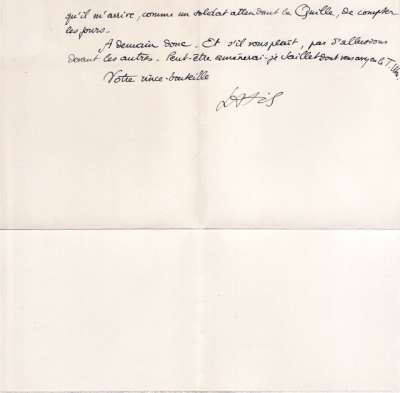 qu'il m'arrive, comme un soldat attendant la Quille, de compter
les jours.
A demain donc. Et s'il vous plaît, pas d'allusions
devant les autres. Peut-être amènerai-je Jaillet dont vous avez
Votre rince-bouteille